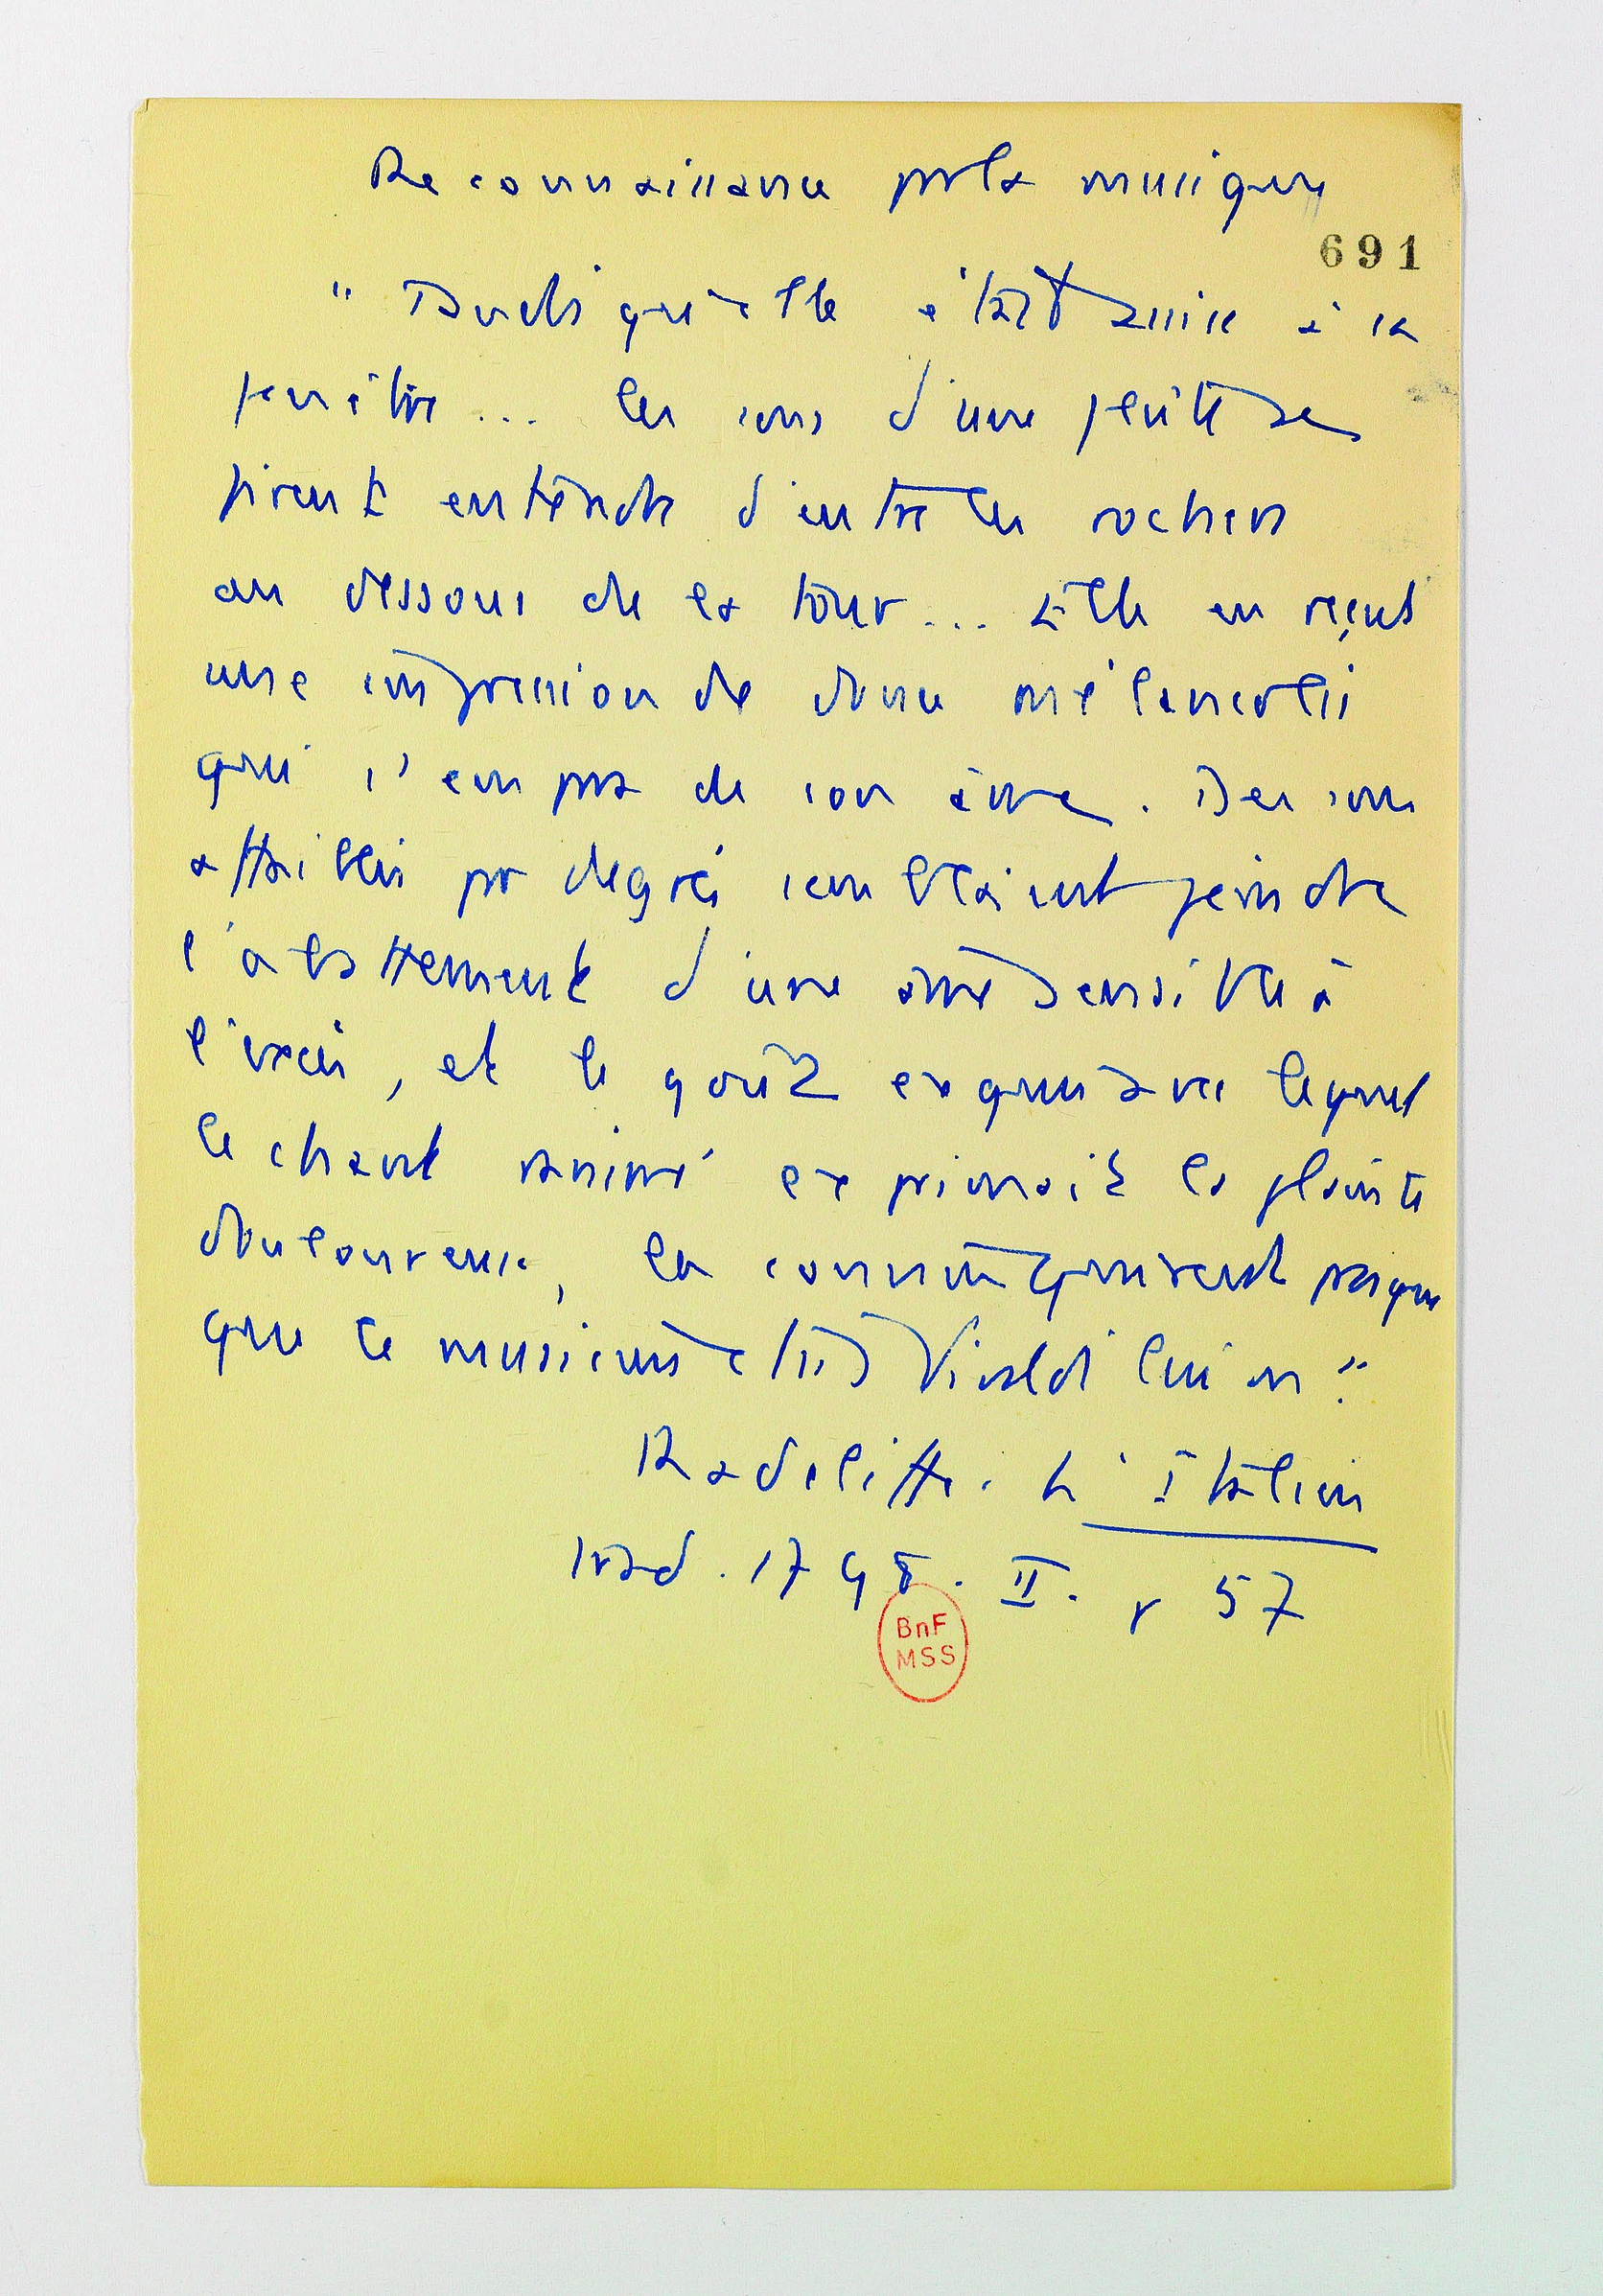 Reconnaissance par la musique
691
" Tandis qu'elle était assise à sa
fenêtre... les sons d'une flûte se
firent entendre d'entre les rochers
au dessous de la tour... Elle en reçut
une impression de douce mélancolie
qui s'empara de son âme. Des sons
affaiblis par degrés semblaient peindre
l'abattement d'une âme sensible à
l'excès, et le goût exquis avec lequel
le chant ranimé exprimait la plainte
douloureuse, la convainquirent presque
que le musicien était Vivaldi lui m "
Radcliffe. L'Italien
trad. 1798. II. p 57
BnF
MSS